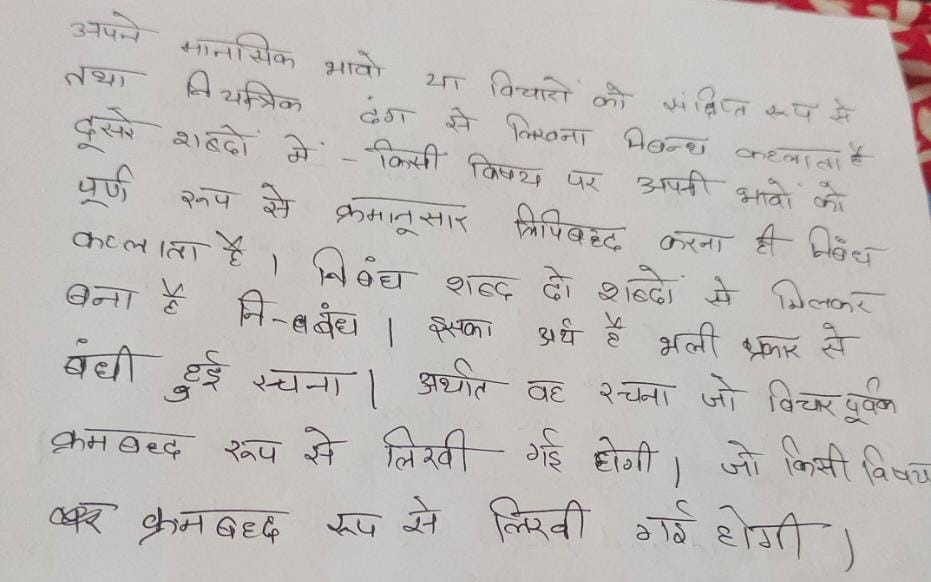 अपने मानसिक भावो या विचारों को संक्षिप्त रूप से
तथा नियन्त्रिक ढंग से लिखना निबन्ध कहलाता है
दूसरे शब्दों में - किसी विषय पर अपनी भावों को
पूर्ण रूप से क्रमानुसार लिपिबद्द करना ही निबंध
कहलाता है । निबंध शब्द दो शब्दों से मिलकर
बना है नि-बंध । इसका अर्थ है भली प्रकार से
बंधी हुई रचना । अर्थात वह रचना जो विचार पूर्वक
क्रमबद्द रूप से लिखी गई होगी । जो किसी विषय
पर क्रमबद्द रूप से लिखी गई होगी ।